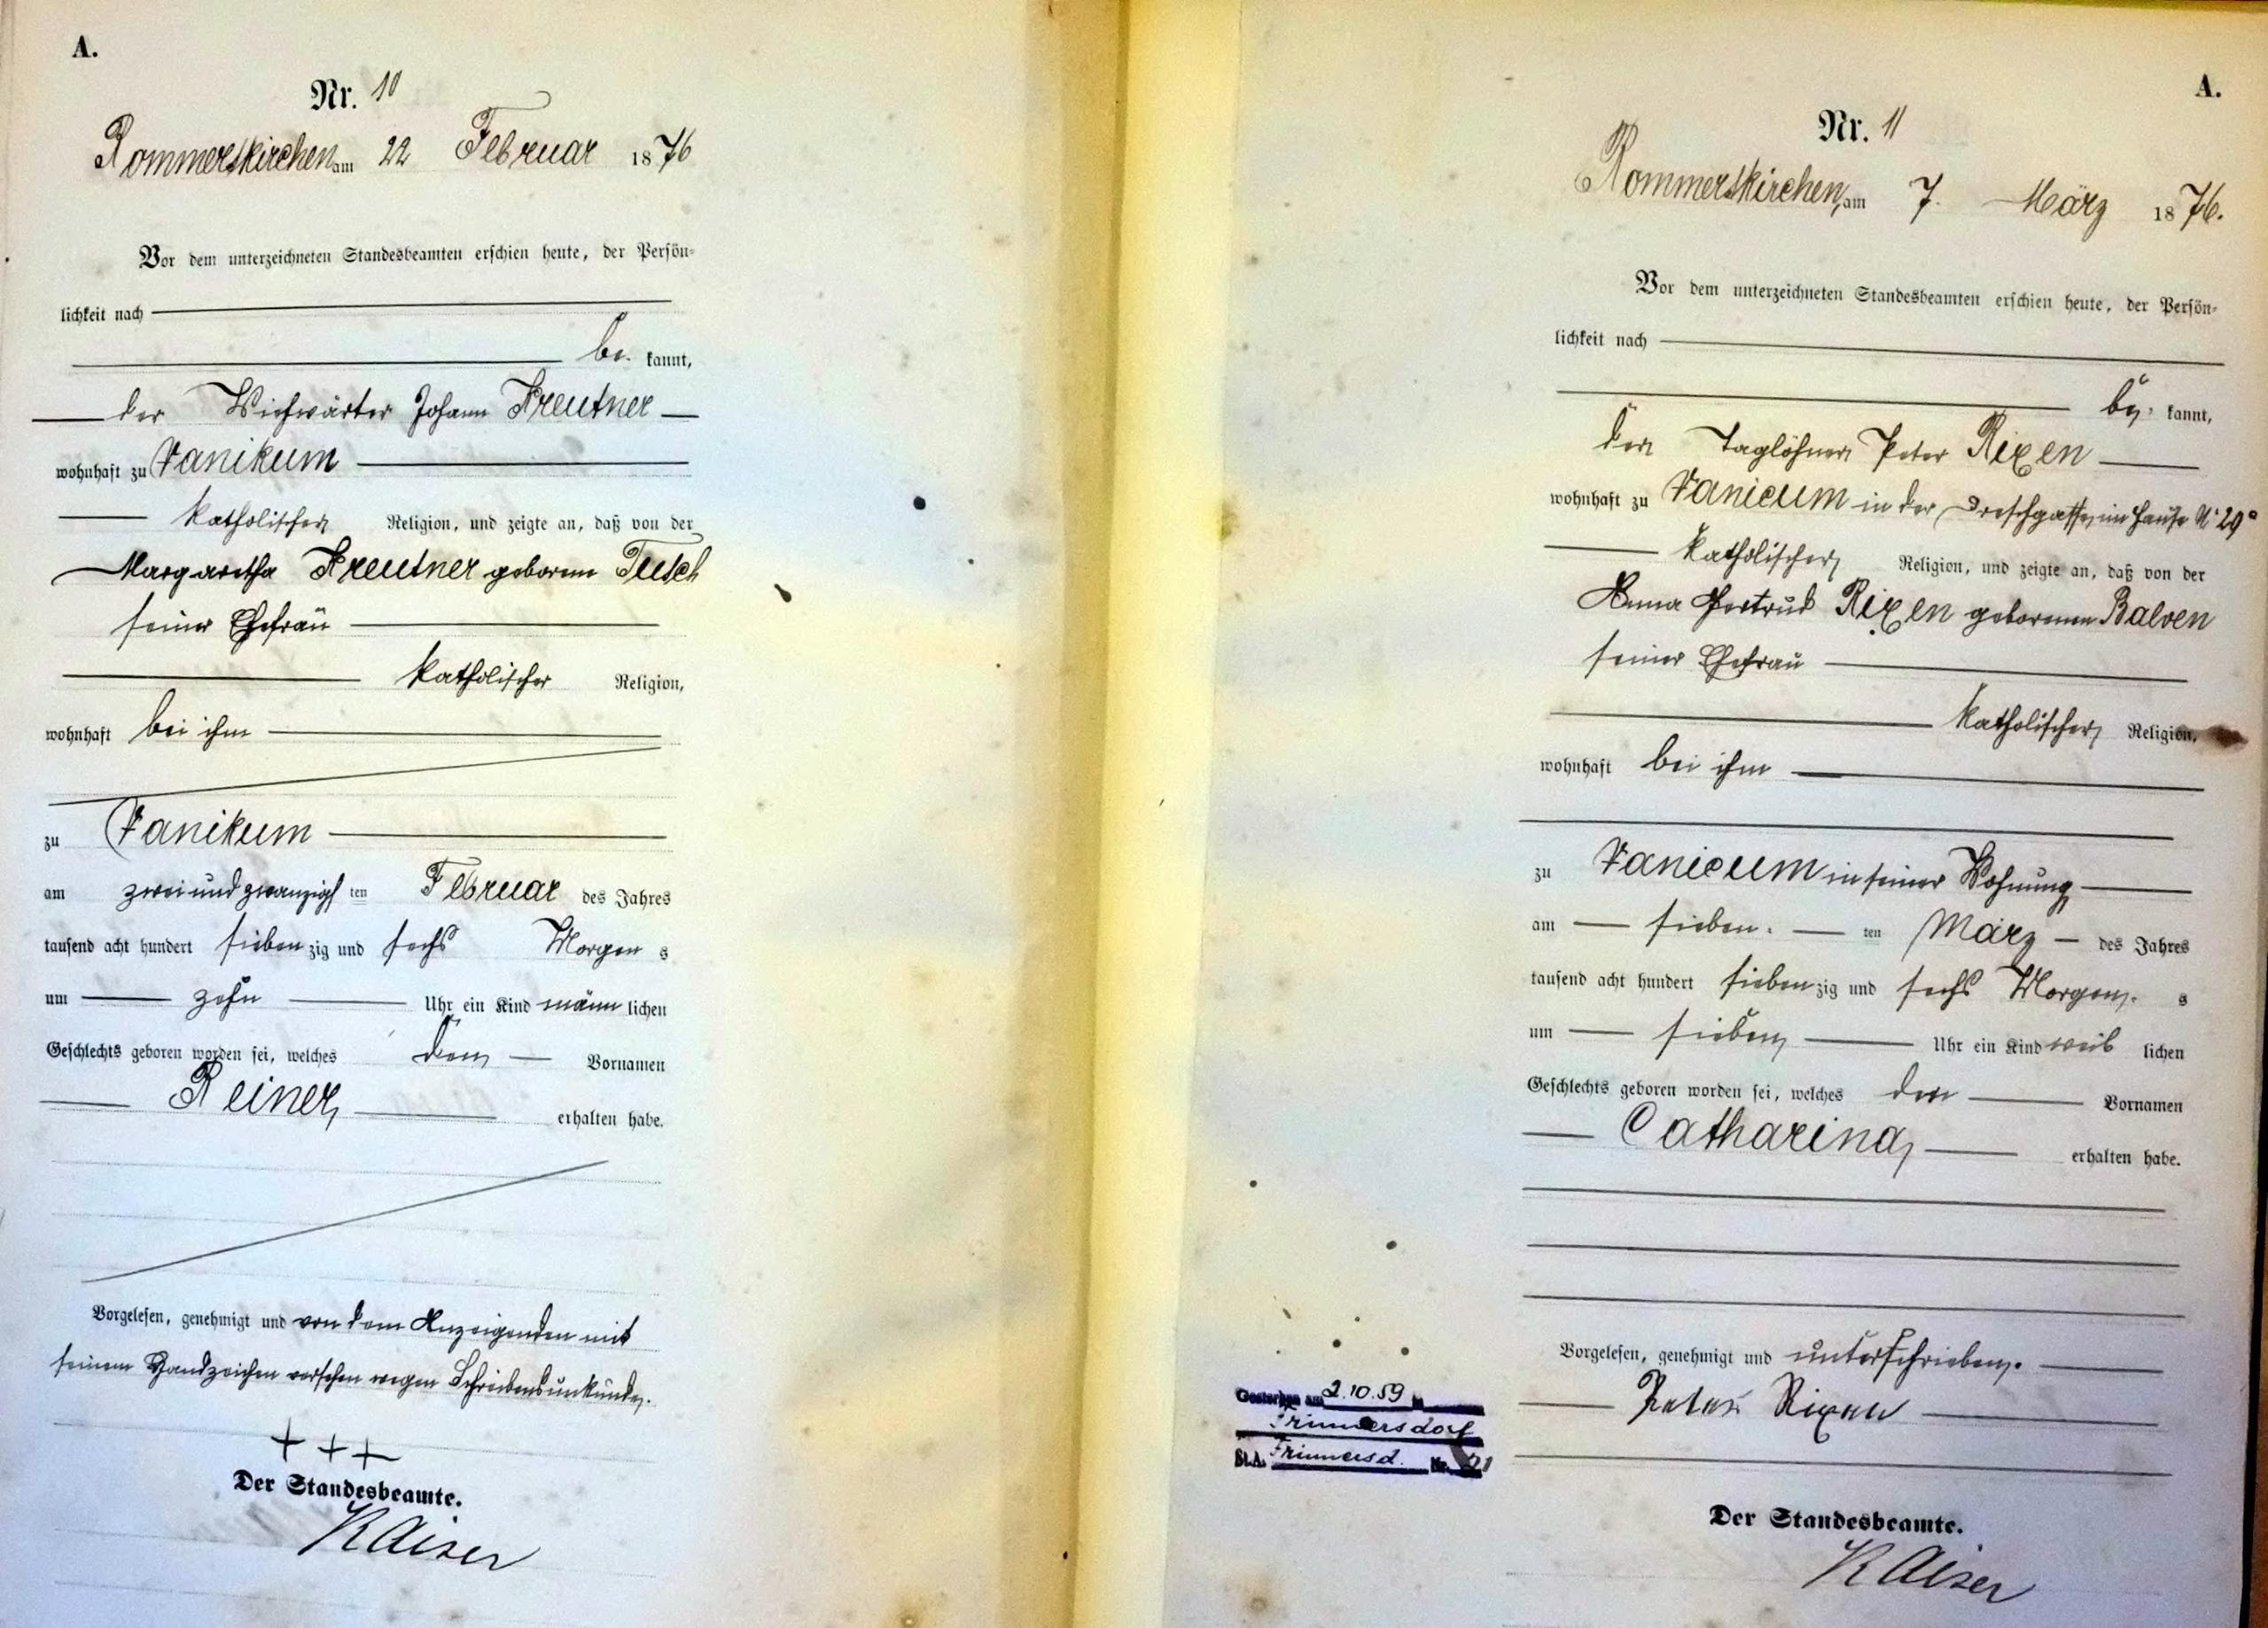 A.
Nr. 10
Rommerskirchen am 22 Februar 1876
Vor dem unterzeichneten Standesbeamten erschien heute, der Persön-
lichkeit nach
be kannt,
der Viehwärter Johann Kreutner
wohnhaft zu Vanikum
katholischer Religion, und zeigte an, daß von der
Margaretha Kreutner geborene Teusch
seiner Ehefrau
katholischer Religion,
wohnhaft bei ihm
zu Vanikum
am zwei und zwanzigsten Februar des Jahres
tausend acht hundert siebenzig und sechs Morgens
um zehn Uhr ein Kind männlichen
Geschlechts geboren worden sei, welches den Vornamen
Reiner erhalten habe.
Vorgelesen, genehmigt und von dem Anzeigenden mit
seinem Handzeichen versehen wegen Schreibensunkunde.
+++
Der Standesbeamte.
Kaiser
A.
Nr. 11
Rommerskirchen, am 7. März 1876.
Vor dem unterzeichneten Standesbeamten erschien heute, der Persön-
lichkeit nach
be kannt,
der Taglöhner Peter Rixen
wohnhaft zu Vanicum in der im Hause No 29
katholischer Religion, und zeigte an, daß von der
Anna Gertrud Rixen geborenen Balven
seiner Ehefrau
katholischer Religion,
wohnhaft bei ihm
zu Vanicum in seiner Wohnung
am sieben ten März des Jahres
tausend acht hundert siebenzig und sechs Morgens
um sieben Uhr ein Kind weiblichen
Geschlechts geboren worden sei, welches den Vornamen
Catharina, erhalten habe.
Vorgelesen, genehmigt und unterschrieben.
Peter Rixen
Der Standesbeamte.
Kaiser
Gestorben am 2.10.59 in
Frimmersdorf
St.A. Frimmersd. Nr. 21